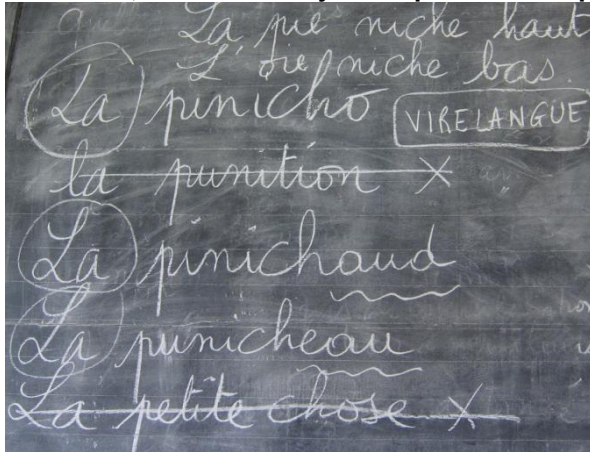 La pie niche haut
L'oie niche bas.
La pinicho
VIRELANGUE
la punition X
La pinichaud
La punicheau
La petite chose X